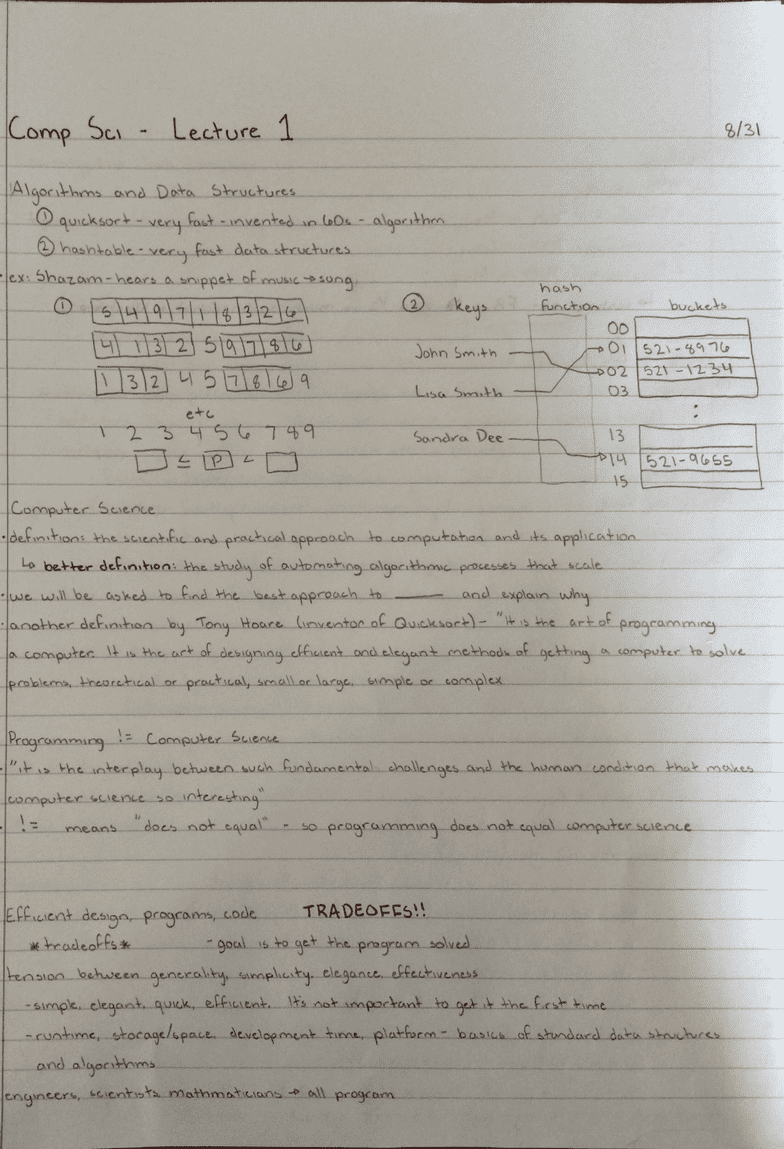 Comp Sci - Lecture 1 8/31
Algorithms and Data Structures
① quicksort - very fast - invented in 60s - algorithm
② hashtable - very fast data structures
• ex: Shazam - hears a snippet of music → song
① 5 4 9 7 1 8 3 2 6
4 1 3 2 5 9 7 8 6
1 3 2 4 5 7 8 6 9
etc
1 2 3 4 5 6 7 8 9
≤ P <
② keys hash function buckets
00
John Smith 01 521-8976
02 521-1234
Lisa Smith 03
:
Sandra Dee 13
14 521-9655
15
Computer Science
• definition: the scientific and practical approach to computation and its application
↳ better definition: the study of automating algorithmic processes that scale
• we will be asked to find the best approach to ____ and explain why
• another definition by Tony Hoare (inventor of Quicksort) - "it is the art of programming
a computer. It is the art of designing efficient and elegant methods of getting a computer to solve
problems, theoretical or practical, small or large, simple or complex
Programming != Computer Science
• "it is the interplay between such fundamental challenges and the human condition that makes
computer science so interesting"
• != means "does not equal" - so programming does not equal computer science
Efficient design, programs, code TRADEOFFS!!
*tradeoffs* - goal is to get the program solved
tension between generality, simplicity, elegance, effectiveness
- simple, elegant, quick, efficient. It's not important to get it the first time
- runtime, storage/space, development time, platform - basics of standard data structures
and algorithms
engineers, scientists mathmaticians → all program